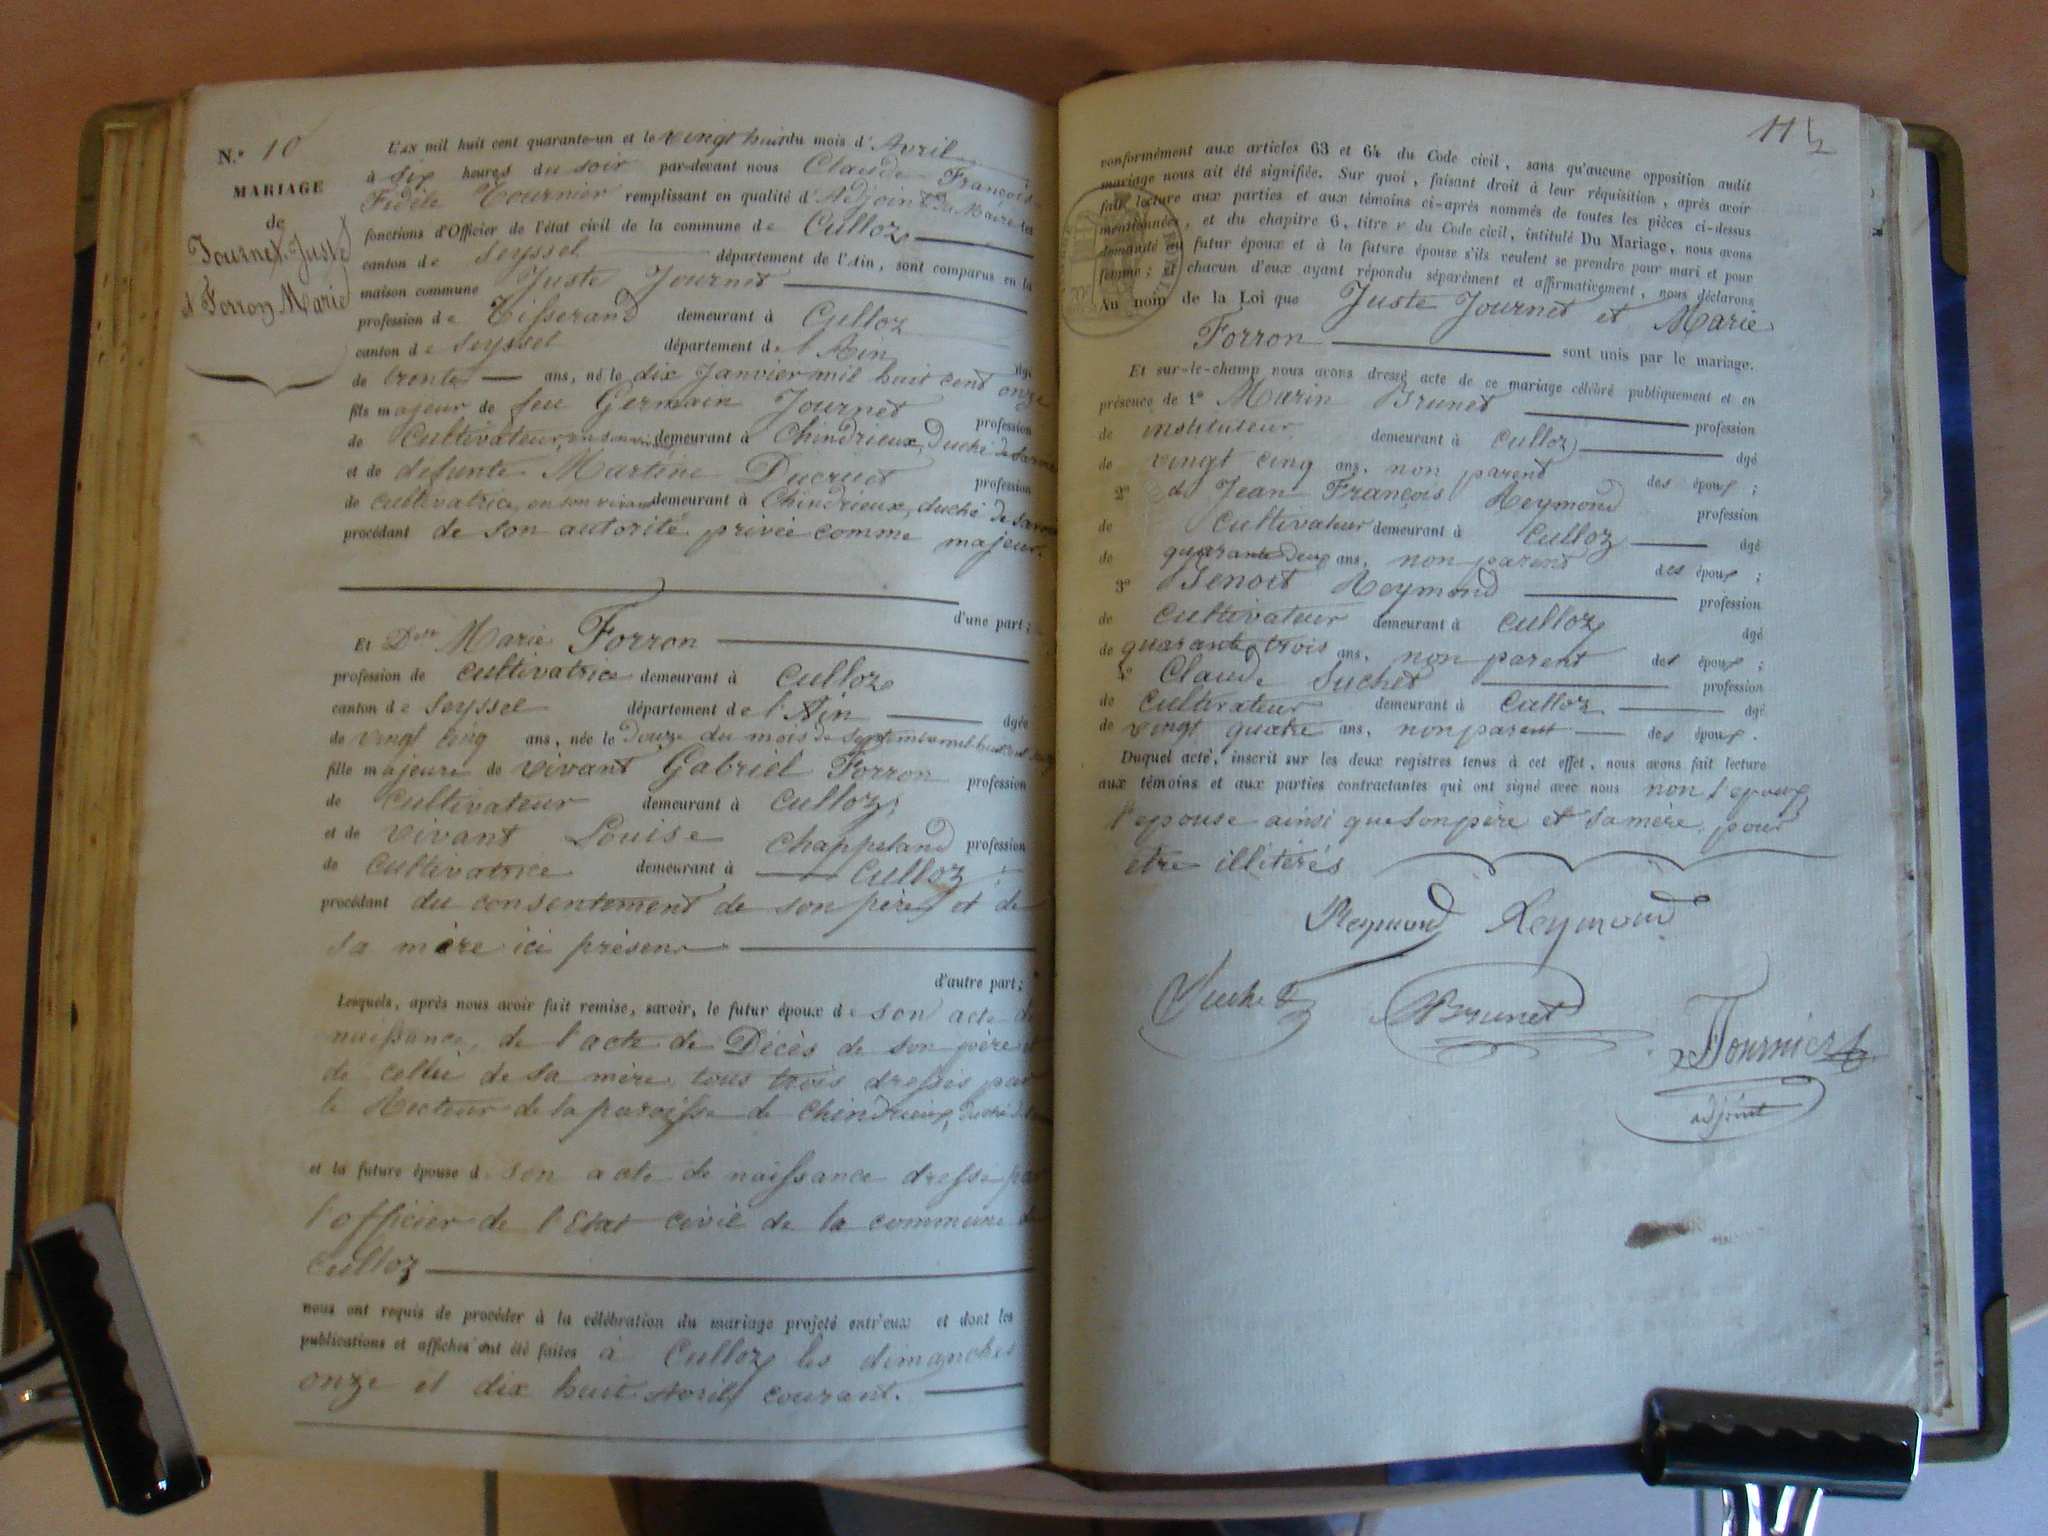 N.° 10
MARIAGE
de
Journet Juste
et Forron Marie
L'AN mil huit cent quarante-un et le vingt huit du mois d'Avril
à six heures du soir par-devant nous Claude François
Fidèle Tournier remplissant en qualité d'Adjoint du Maire les
fonctions d'Officier de l'état civil de la commune de Culloz
canton de Seyssel département de l'Ain, sont comparus en la
maison commune Juste Journet
profession de Tisserand demeurant à Culloz
canton de Seyssel département de l'Ain âgé
de trente ans, né le dix Janvier mil huit cent onze
fils majeur de feu Germain Journet profession
de Cultivateur, en son vivant demeurant à Chindrieux, duché de Savoie
et de defunte Martine Ducruet profession
de cultivatrice, en son vivant demeurant à Chindrieux, duché de Savoie
procédant de son autorité privée comme majeur.
d'une part ;
Et Dlle Marie Forron
profession de cultivatrice demeurant à Culloz
canton de Seyssel département de l'Ain âgée
de vingt cinq ans, née le Douze du mois de Septembre mil huit cent
fille majeure de vivant Gabriel Forron profession
de cultivateur demeurant à Culloz
et de vivant Louise Chappeland profession
de cultivatrice demeurant à Culloz
procédant du consentement de son père et de
sa mère ici présens
d'autre part ;
Lesquels, après nous avoir fait remise, savoir, le futur époux de son acte de
naissance, de l'acte de Décès de son père et
de celui de sa mère, tous trois dressés par
le Recteur de la paroisse de Chindrieux, duché de
et la future épouse d son acte de naissance dressé par
l'officier de l'Etat civil de la commune de
Culloz
nous ont requis de procéder à la célébration du mariage projeté entr'eux et dont les
publications et affiches ont été faites à Culloz les dimanches
onze et dix huit Avril courant.
11
conformément aux articles 63 et 64 du Code civil, sans qu'aucune opposition audit
mariage nous ait été signifiée. Sur quoi, faisant droit à leur réquisition, après avoir
fait lecture aux parties et aux témoins ci-après nommés de toutes les pièces ci-dessus
mentionnées, et du chapitre 6, titre v du Code civil, intitulé Du Mariage, nous avons
demandé au futur époux et à la future épouse s'ils veulent se prendre pour mari et pour
femme ; et chacun d'eux ayant répondu séparément et affirmativement, nous déclarons
Au nom de la Loi que Juste Journet et Marie
Forron sont unis par le mariage.
Et sur-le-champ nous avons dressé acte de ce mariage célébré publiquement et en
présence de 1° Marin Brunet profession
de instituteur demeurant à Culloz âgé
de vingt cinq ans, non parent des époux ;
2° d Jean François Reymond profession
de Cultivateur demeurant à Culloz âgé
de quarante deux ans, non parent des époux ;
3° Benoit Reymond profession
de cultivateur demeurant à Culloz âgé
de quarante trois ans, non parent des époux ;
4° Claude Suchet profession
de cultivateur demeurant à Culloz âgé
de vingt quatre ans, non parent des époux.
Duquel acte, inscrit sur les deux registres tenus à cet effet, nous avons fait lecture
aux témoins et aux parties contractantes qui ont signé avec nous non l'epoux
l'epouse ainsi que son père et sa mère, pour
etre illitérés
Reymond Reymond
Suchet Brunet
Tournier
adjoint